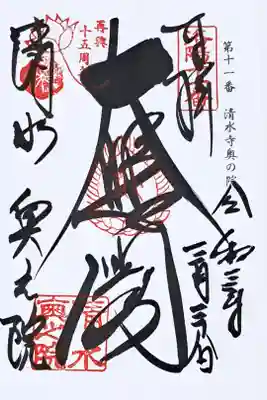 第十一番 清水寺奥の院
奉拝
令和三年
大悲殿
再興
十五周
清水 奥之院
清水
奥之院